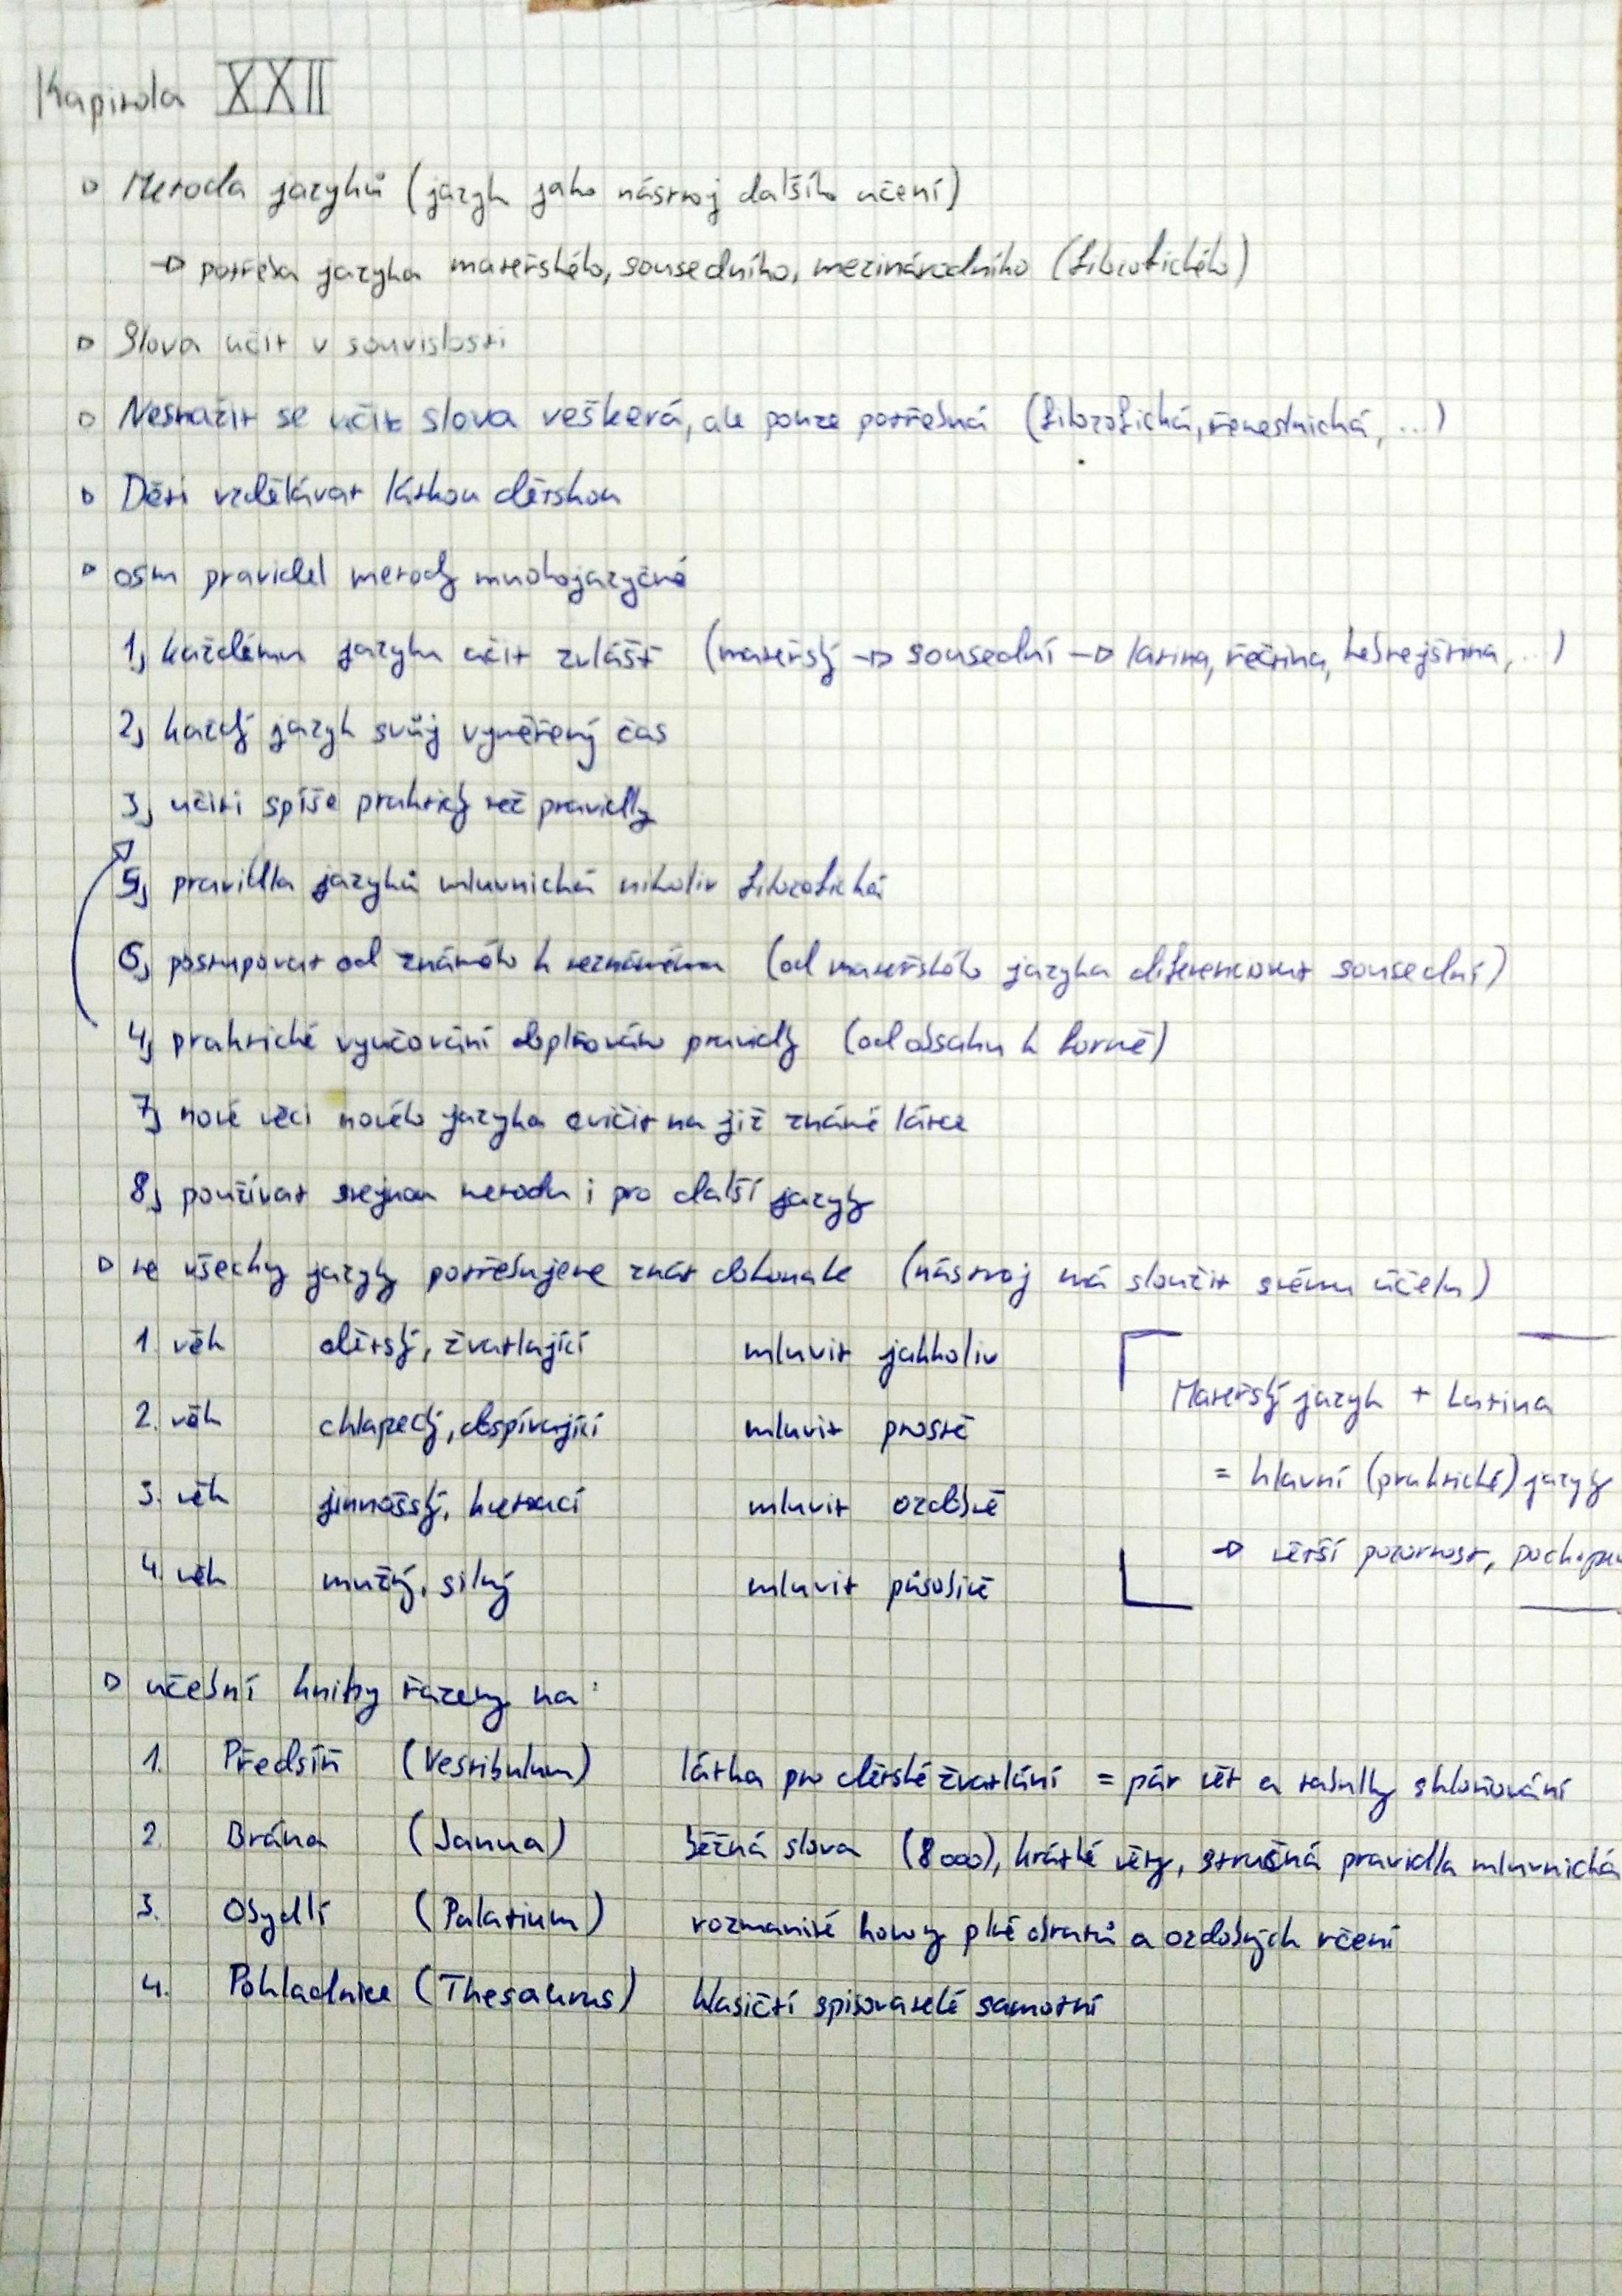 Kapitola XXII
Metoda jazyků (jazyk jako nástroj dalšího učení)
→ potřeba jazyka mateřského, sousedního, mezinárodního (filozofického)
Slova učit v souvislosti
Nesnažit se učit slova veškerá, ale pouze potřebná (filozofická, řemeslnická, ...)
Děti vzdělávat látkou dětskou
osm pravidel metody mnohojazyčné
1, každému jazyku učit zvlášť (mateřský → sousední → latina, řečtina, hebrejština, ...)
2, každý jazyk svůj vyměřený čas
3, učiti spíše prakticky než pravidly
5, pravidla jazyků mluvnická nikoliv filozofická
6, postupovat od známého k neznámému (od mateřského jazyka diferencovat sousední)
4, praktické vyučování doplňováno pravidly (od obsahu k formě)
7, nové věci nového jazyka cvičit na již známé látce
8, používat stejnou metodu i pro další jazyky
ne všechny jazyky potřebujeme znát dokonale (nástroj má sloužit svému účelu)
1. věk dětský, žvatlající mluvit jakkoliv
2. věk chlapecký, dospívající mluvit prostě
3. věk jinošský, kvetoucí mluvit ozdobně
4. věk mužný, silný mluvit působivě
Mateřský jazyk + Latina
= hlavní (praktické) jazyky
→ větší pozornost,
učební knihy řazeny na:
1. Předsíň (Vestibulum) látka pro dětské žvatlání = pár vět a tabulky skloňování
2. Brána (Janua) běžná slova (8000), krátké věty, stručná pravidla mluvnická
3. Obydlí (Palatium) rozmanité hovory plné obratů a ozdobných rčení
4. Pokladnice (Thesaurus) klasičtí spisovatelé samotní